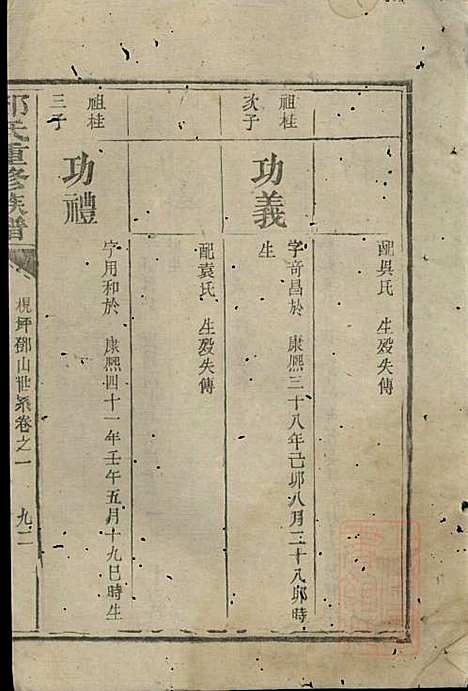 配吳氏 生歿失傳
祖桂
次子
功義
字奇昌於 康熙三十八年己卯八月三十八卯時
生
配袁氏 生歿失傳
祖桂
三子
功禮
字用和於 康熙四十一年壬午五月十九巳時生
氏重修族譜
梘坪鄧山世系卷之一
九二